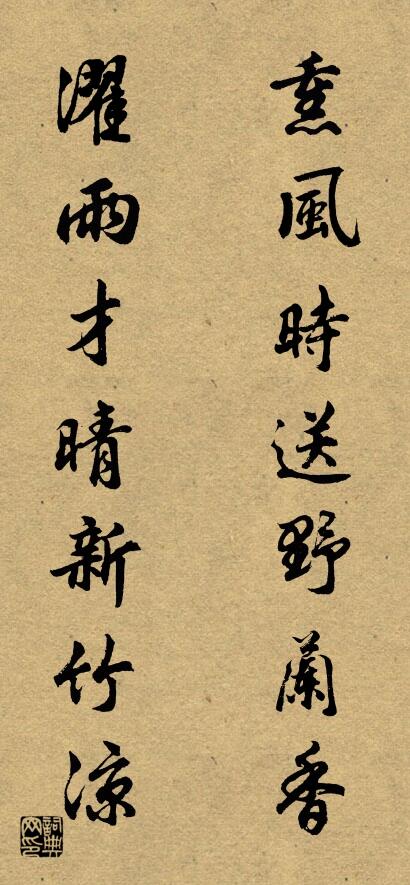 熏風時送野蘭香
濯雨才晴新竹凉
詞典网印